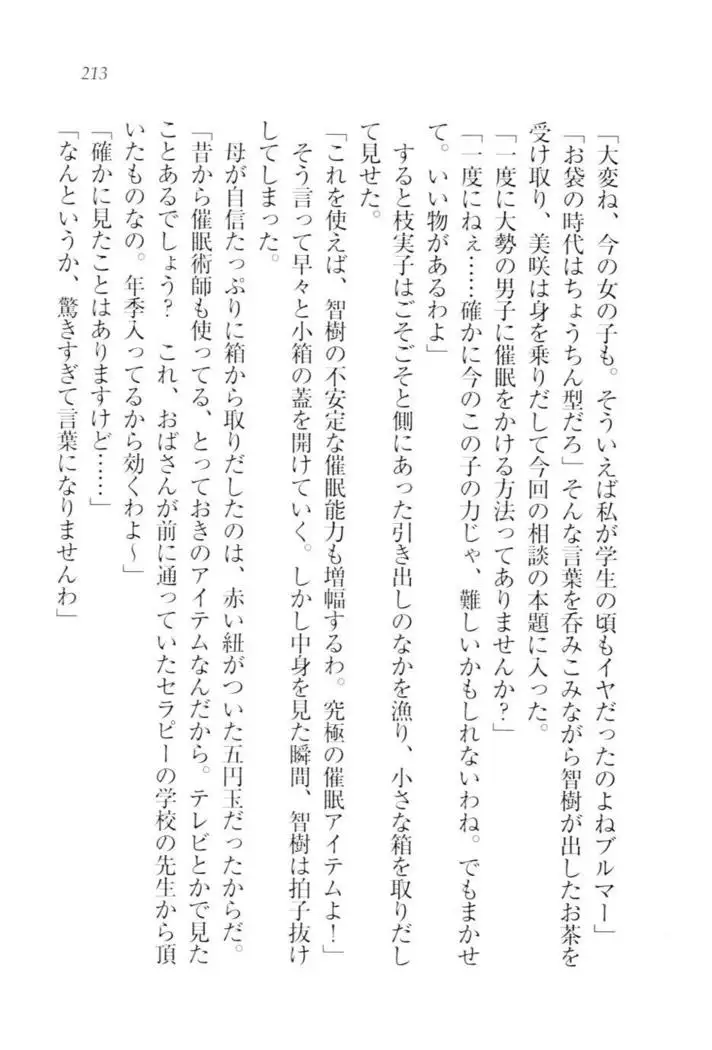 213
「大変ね、今の女の子も。そういえば私が学生の頃もイヤだったのよねブルマー」
「お袋の時代はちょうちん型だろ」そんな言葉を呑みこみながら智樹が出したお茶を
受け取り、美咲は身を乗りだして今回の相談の本題に入った。
「一度に大勢の男子に催眠をかける方法ってありませんか？」
「一度にねぇ……確かに今のこの子の力じゃ、難しいかもしれないわね。でもまかせ
て。いい物があるわよ」
すると枝実子はごそごそと側にあった引き出しのなかを漁り、小さな箱を取りだし
て見せた。
「これを使えば、智樹の不安定な催眠能力も増幅するわ。究極の催眠アイテムよ！」
そう言って早々と小箱の蓋を開けていく。しかし中身を見た瞬間、智樹は拍子抜け
してしまった。
母が自信たっぷりに箱から取りだしたのは、赤い紐がついた五円玉だったからだ。
「昔から催眠術師も使ってる、とっておきのアイテムなんだから。テレビとかで見た
ことあるでしょう？　これ、おばさんが前に通っていたセラピーの学校の先生から頂
いたものなの。年季入ってるから効くわよ～」
「確かに見たことはありますけど……」
「なんというか、驚きすぎて言葉になりませんわ」